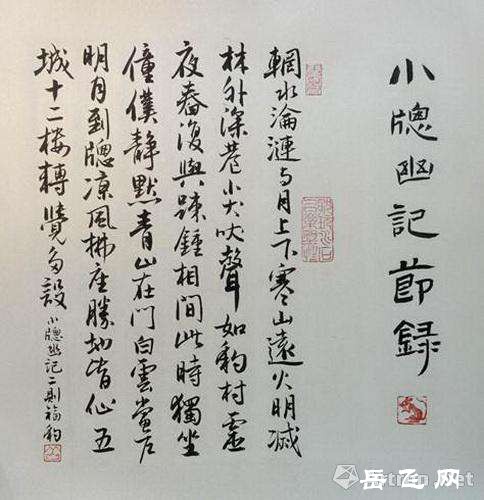 小牕幽記節録
輞水淪漣与月上下寒山遠火明滅
林外深巷小犬吠聲如豹村虛
夜舂復與疎鍾相間此時獨坐
僮僕靜默青山在門白雲當户
明月到牕凉風拂座勝地皆仙五
城十二楼轉覺多設
小牕幽記二則福豹
岳飞网